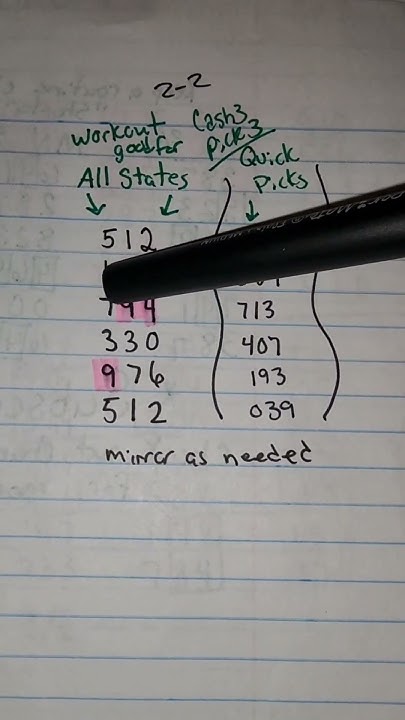 2-2
workout good for All States
Cash3 Pick3
Quick Picks
512
794 713
330 407
976 193
512 039
mirror as needed